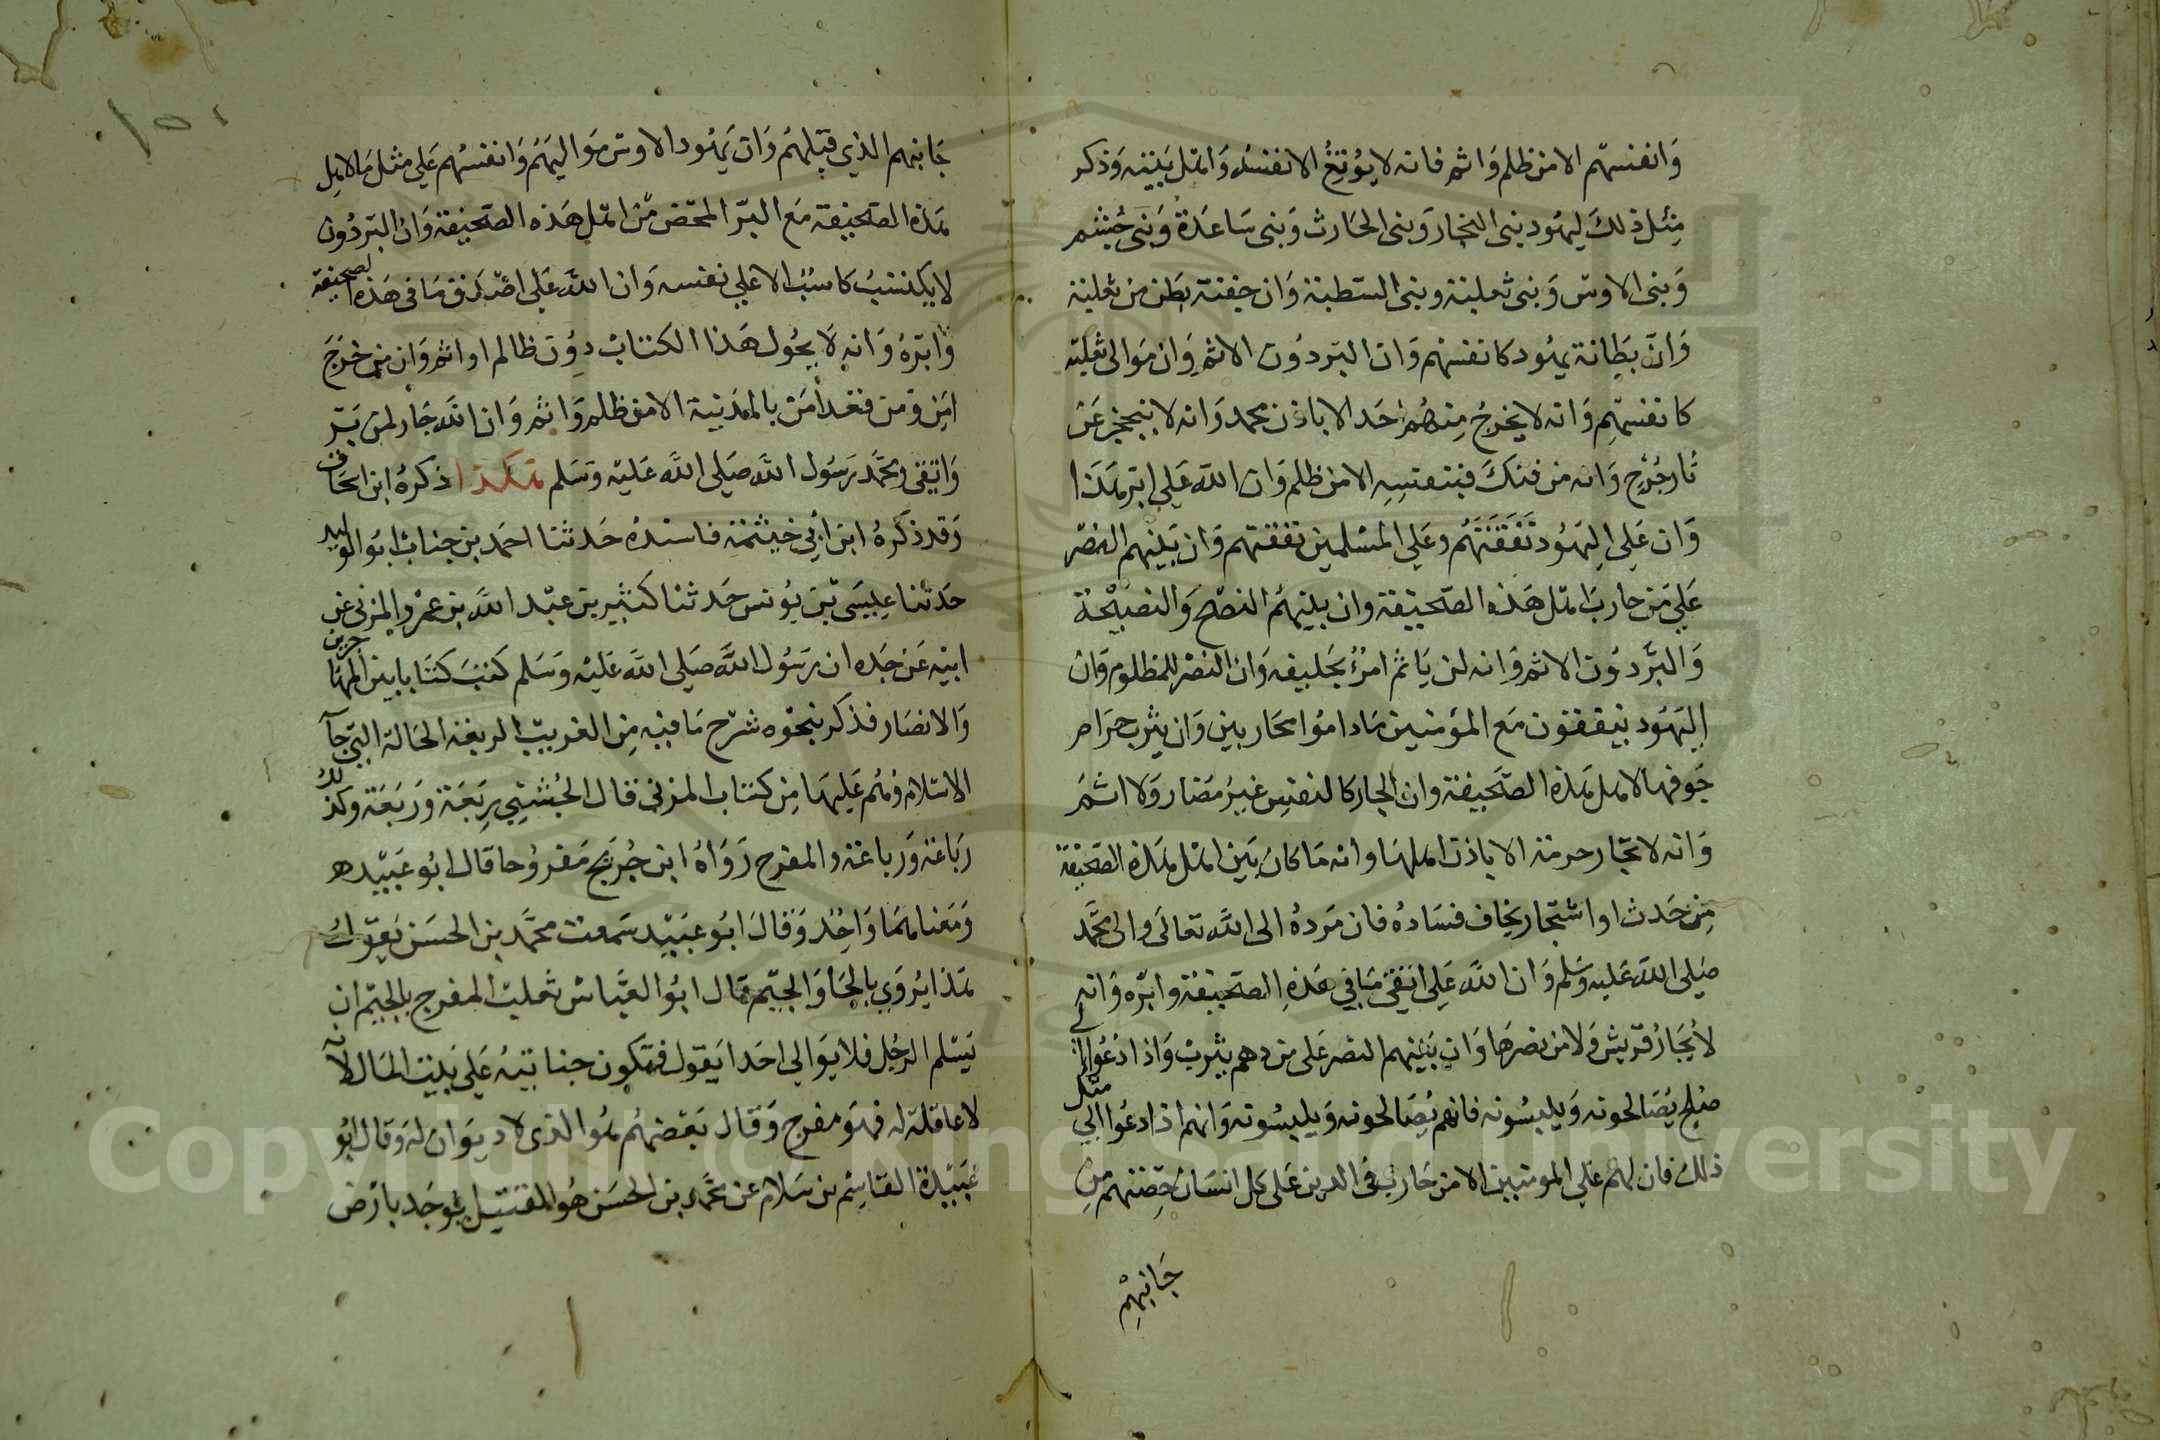 وانفسهم الا من ظلم واثم فانه لا يوتغ الا نفسه واهل بيته وذكر
مثل ذلك ليهود بنى النجار وبنى الحارث وبنى ساعدة وبنى جشم
وبنى الاوس وبنى ثعلبة وبنى الشطبة وان جفنة بطن من ثعلبة
وان بطانة يهود كانفسهم وان البر دون الاثم وان موالى ثعلبة
كانفسهم وانه لا يخرج منهم احد الا باذن محمد وانه لا ينحجز عن
ثار جرح وانه من فتك فبنفسه الا من ظلم وان الله على ابر هذا
وان على اليهود نفقتهم وعلى المسلمين نفقتهم وان بينهم النصر
على من حارب اهل هذه الصحيفة وان بينهم النصح والنصيحة
والبر دون الاثم وانه لن ياثم امرؤ بحليفه وان النصر للمظلوم وان
اليهود ينفقون مع المؤمنين ما داموا محاربين وان يثرب حرام
جوفها لاهل هذه الصحيفة وان الجار كالنفس غير مضار ولا اثم
وانه لا تجار حرمة الا باذن اهلها وانه ما كان بين اهل هذه الصحيفة
من حدث او اشتجار يخاف فساده فان مرده الى الله تعالى والى محمد
صلى الله عليه وسلم وان الله على اتقى ما في هذه الصحيفة وابره وانه
لا تجار قريش ولا من نصرها وان بينهم النصر على من دهم يثرب واذا دعوا الى
صلح يصالحونه ويلبسونه فانهم يصالحونه ويلبسونه وانهم اذا دعوا الى مثل
ذلك فان لهم على المومنين الا من حارب فى الدين على كل انسان حصتهم من
جانبهم
١٥١
جانبهم الذي قبلهم وان يهود الاوس مواليهم وانفسهم على مثل ما لاهل
هذه الصحيفة مع البر المحض من اهل هذه الصحيفة وان البر دون
لا يكتسب كاسب الا على نفسه وان الله على اصدق ما فى هذه الصحيفة
وابره وانه لا يحول هذا الكتاب دون ظالم او اثم وان من خرج
امن ومن قعد امن بالمدينة الا من ظلم واثم وان الله جار لمن بر
واتقى ومحمد رسول الله صلى الله عليه وسلم هكذا ذكره ابن اسحاق
وقد ذكره ابن ابي خيثمة فاسنده حدثنا احمد بن جناب ابو الوليد
حدثنا عيسى بن يونس حدثنا كثير بن عبد الله بن عمرو المزنى عن
ابيه عن جده ان رسول الله صلى الله عليه وسلم كتب كتابا بين المهاجرين
والانصار فذكر بنحوه شرح ما فيه من الغريب الربعة الحالة التي جآ
الاسلام وهم عليها من كتاب المزنى قال الخشني ربعة وربعة وكذلك
رباعة ورباعة والمفرح رواه ابن جريج مفروحا قال ابو عبيده
ومعناهما واحد وقال ابو عبيد سمعت محمد بن الحسن يقول
هذا يروى بالحا والجيم قال ابو العباس ثعلب المفرج بالجيم ان
يسلم الرجل فلا يوالي احدا يقول فتكون جنايته على بيت المال لانه
لا عاقلة له فهو مفرج وقال بعضهم هو الذى لا ديوان له وقال ابو
عبيدة القاسم بن سلام عن محمد بن الحسن هو القتيل يوجد بارض
Copyright © King Saud University